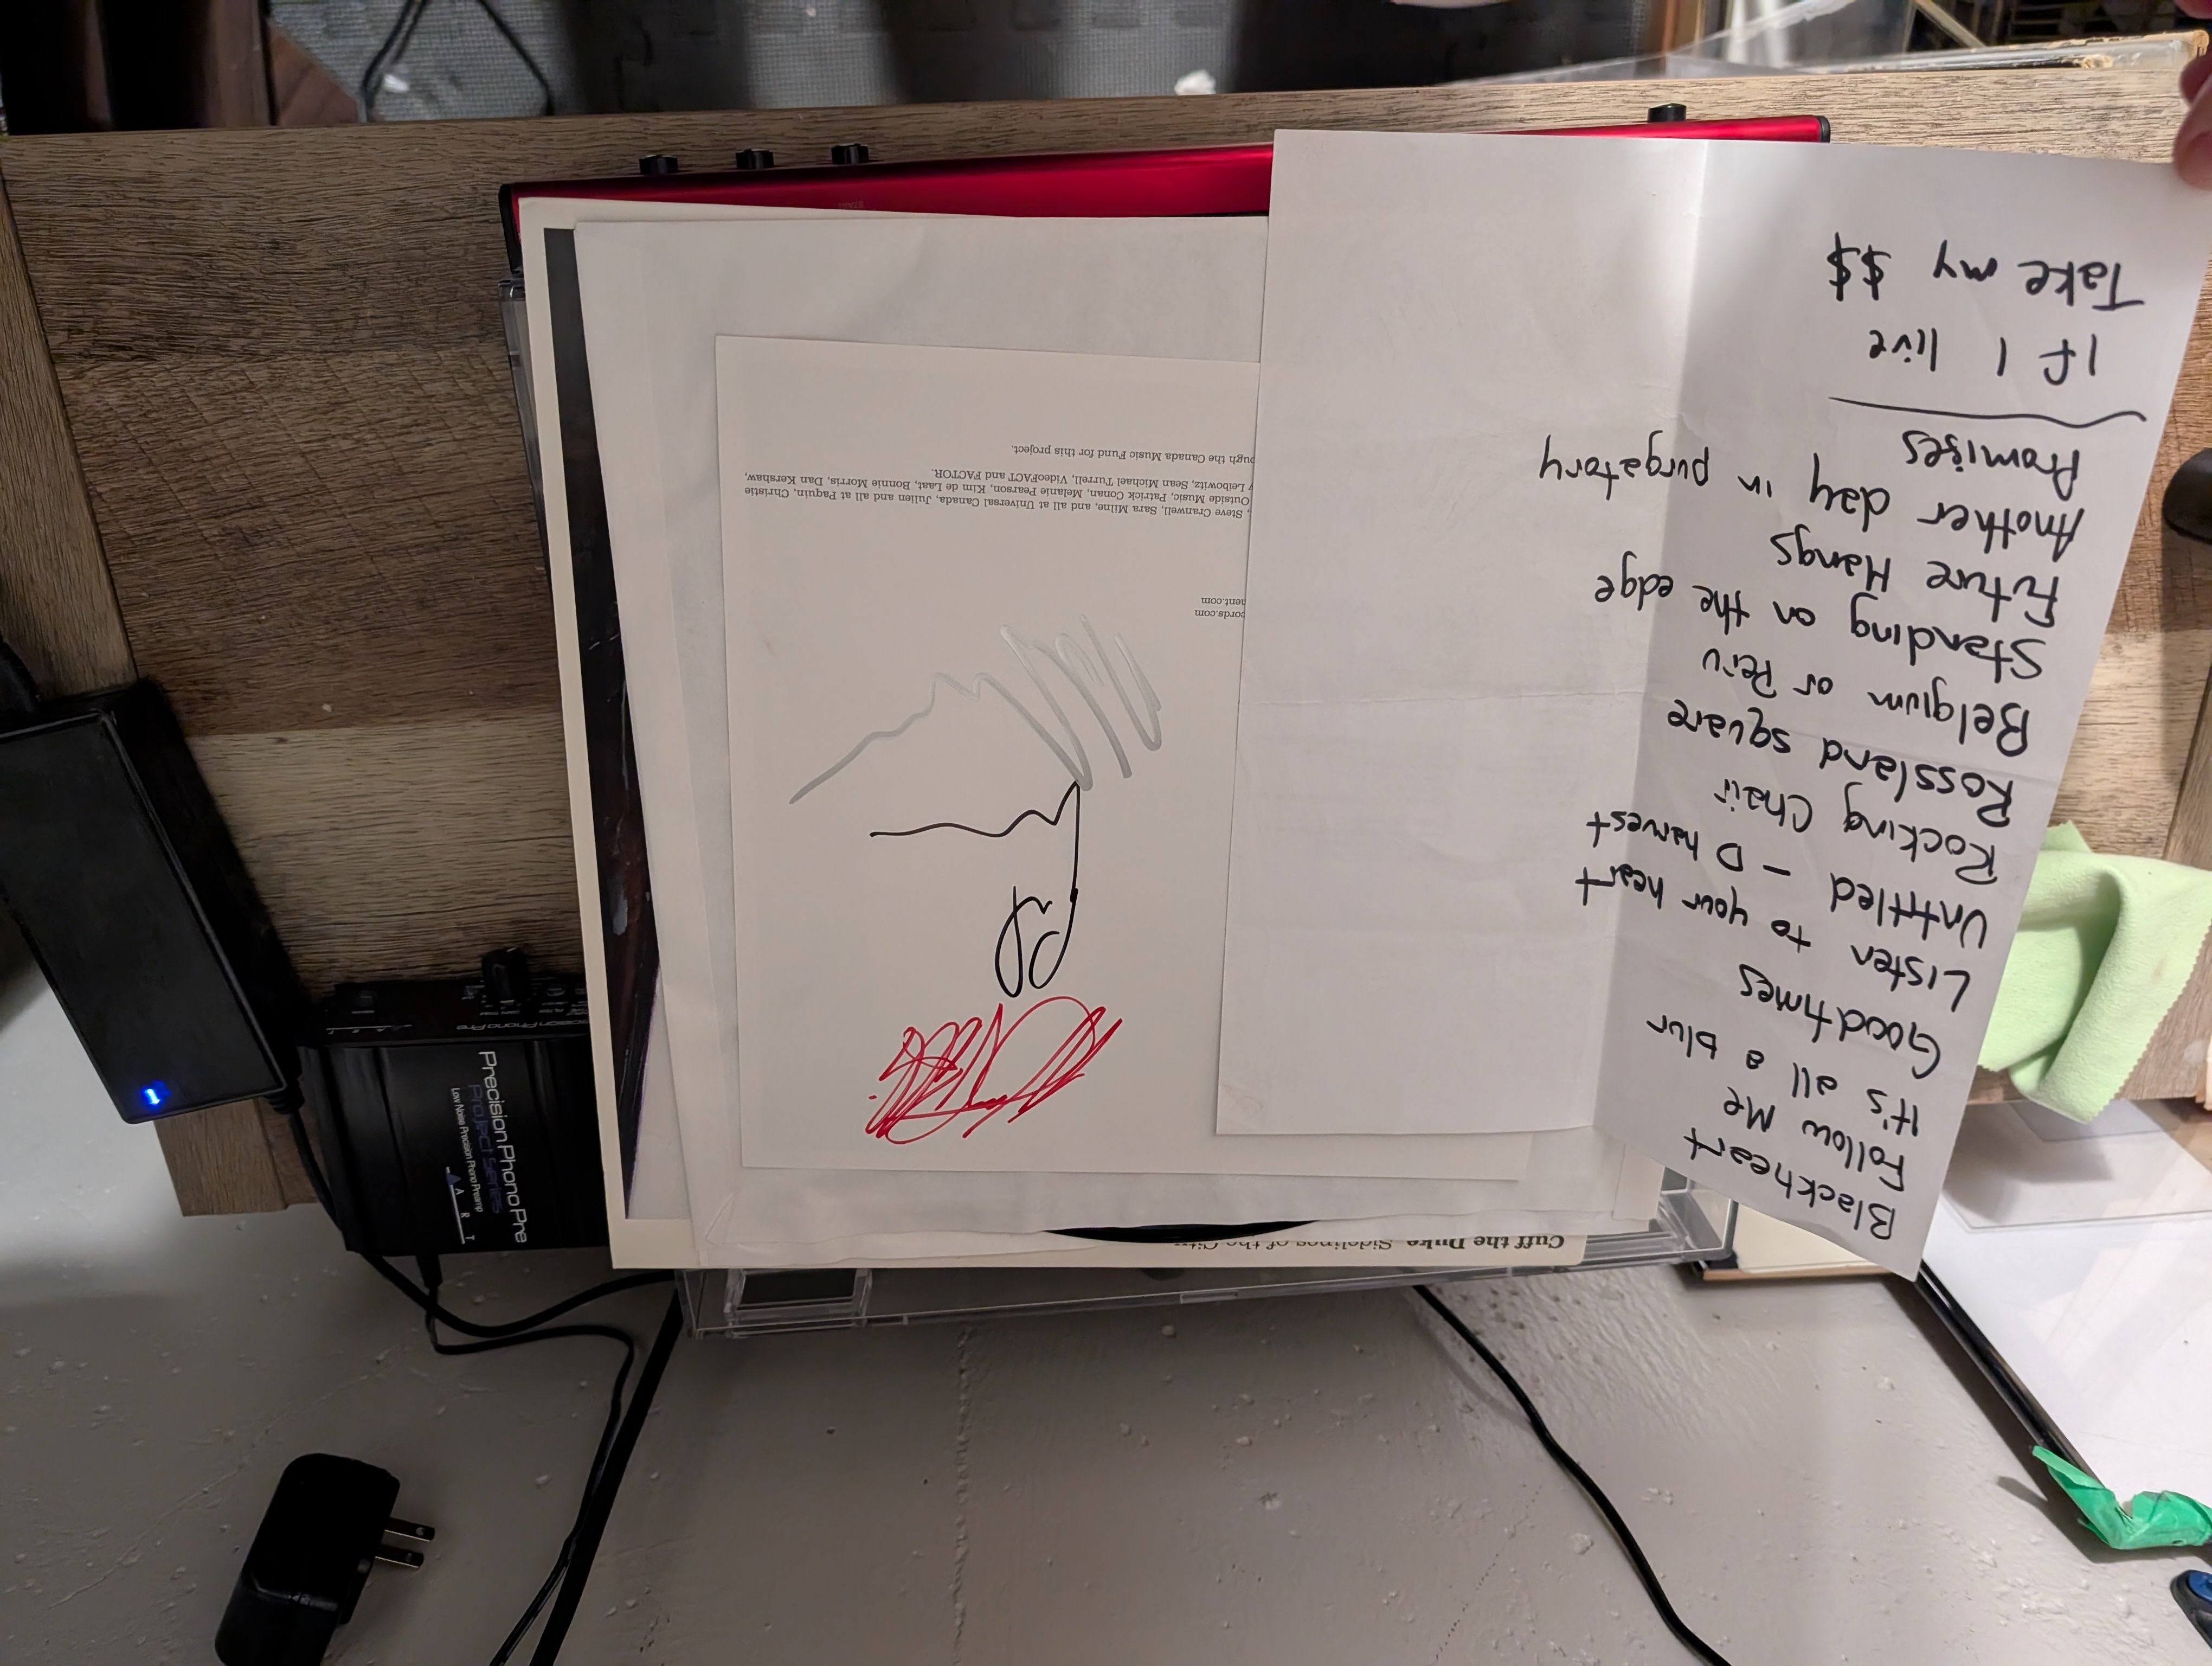 Blackheart
Follow Me
It's all a blur
Goodtimes
Listen to your heart
Untitled - D harvest
Rocking Chair
Rossland square
Belgium or Peru
Standing on the edge
Future Hangs
Another day in purgatory
Promises
If I live
Take my $$
Cuff the Duke Sidelines of the City
ords.com
ent.com
, Steve Cranwell, Sara Milne, and all at Universal Canada, Julien and all at Paquin, Christie
Outside Music, Patrick Conan, Melanie Pearson, Kim de Laat, Bonnie Morris, Dan Kershaw,
Leibowitz, Sean Michael Turrell, VideoFACT and FACTOR.
ough the Canada Music Fund for this project.
Precision Phono Pre
Project series
Low Noise Precision Phono Preamp
ART